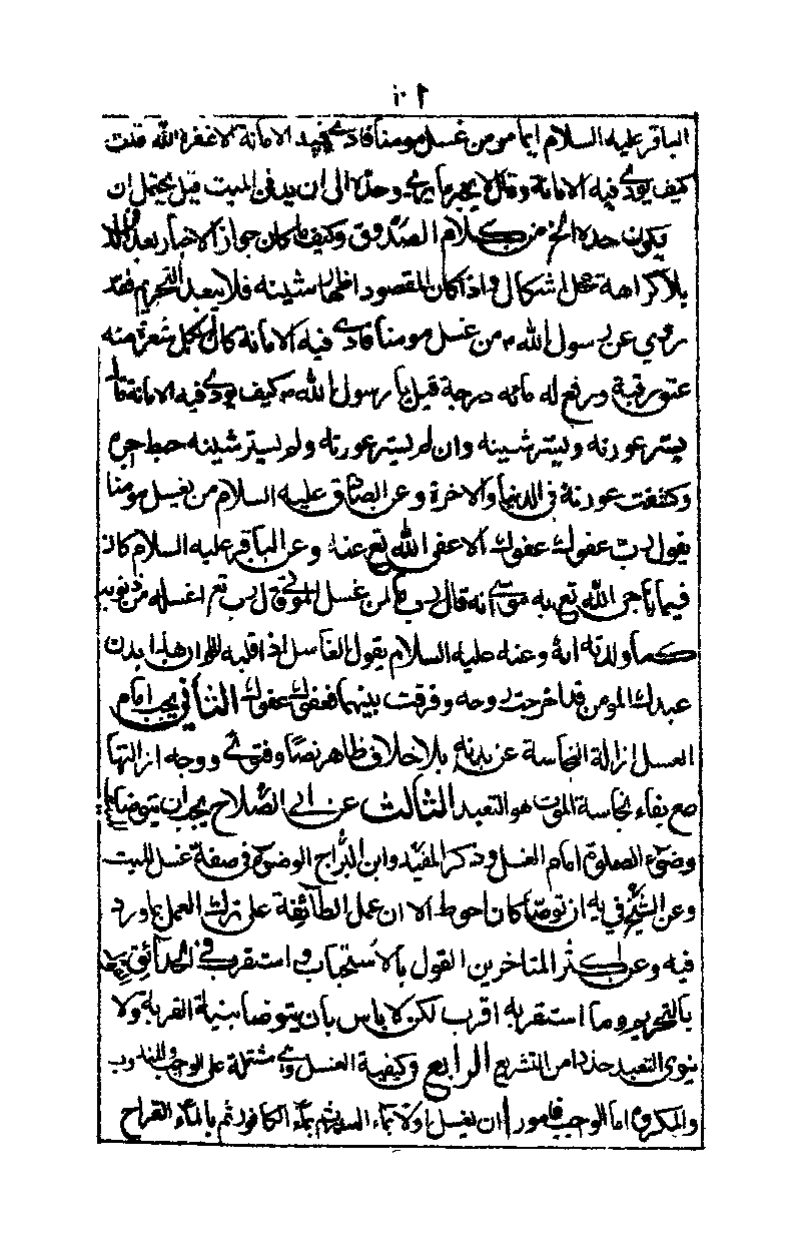 الباقر عليه السلام ايما مومن غسل مومنا فادى فيه الامانة الا غفر الله قلت
كيف يودى فيه الامانة وقال لا يخبر بما يرى وحده الى ان يدفن الميت قيل يحتمل ان
يكون حده الخ من كلام الصدوق وكيف ما كان جواز الاخبار بعد
بلا كراهة محل اشكال واذا كان المقصود اظهار شينه فلا يبعد التحريم فقد
روي عن رسول الله ص من غسل مومنا فادى فيه الامانة كان له بكل شعرة منه
عتق رقبة ورفع له مائه درجة قيل يا رسول الله ص كيف يودى فيه الامانة قال
يستر عورته ويستر شينه وان لم يستر عورته ولم يستر شينه حبط اجره
وكشفت عورته في الدنيا والاخرة وعن الصادق عليه السلام من يغسل مومنا
يقول رب عفوك عفوك الا عفى الله تع عنه وعن الباقر عليه السلام كان
فيما ناجى الله تع به موسى انه قال يا رب ما لمن غسل الموتى قال رب تع اغسله من ذنوبه
كما ولدته امه وعنه عليه السلام يقول الغاسل اذا قلبه اللهم ان هذا بدن
عبدك المومن قد اخرجت روحه وفرقت بينهما فعفوك عفوك الثاني يجب امام
الغسل ازالة النجاسة عن بدنه بلا خلاف ظاهر نصا وفتوى ووجه ازالتها
مع بقاء نجاسة الموت هو التعبد الثالث عن ابي الصلاح يجب ان يتوضا
وضوء الصلوة امام الغسل وذكر المفيد وابن البراج الوضوء في صفة غسل الميت
وعن الشيخ في يه ان توضا كان احوط الا ان عمل الطائفة على ترك العمل بما ورد
فيه وعن اكثر المتاخرين القول بالاستحباب واستقرب في الحدائق
بالتحريم وما استقربه اقرب لكن لا باس بان يتوضا بنية القربة ولا
ينوى التعبد حذرا من التشريع الرابع وكيفية الغسل وهي مشتملة على الواجب والمندوب
والمكروه اما الواجب فامور ا ان يغسل اولا بماء السدر ثم بماء الكافور ثم بالماء القراح